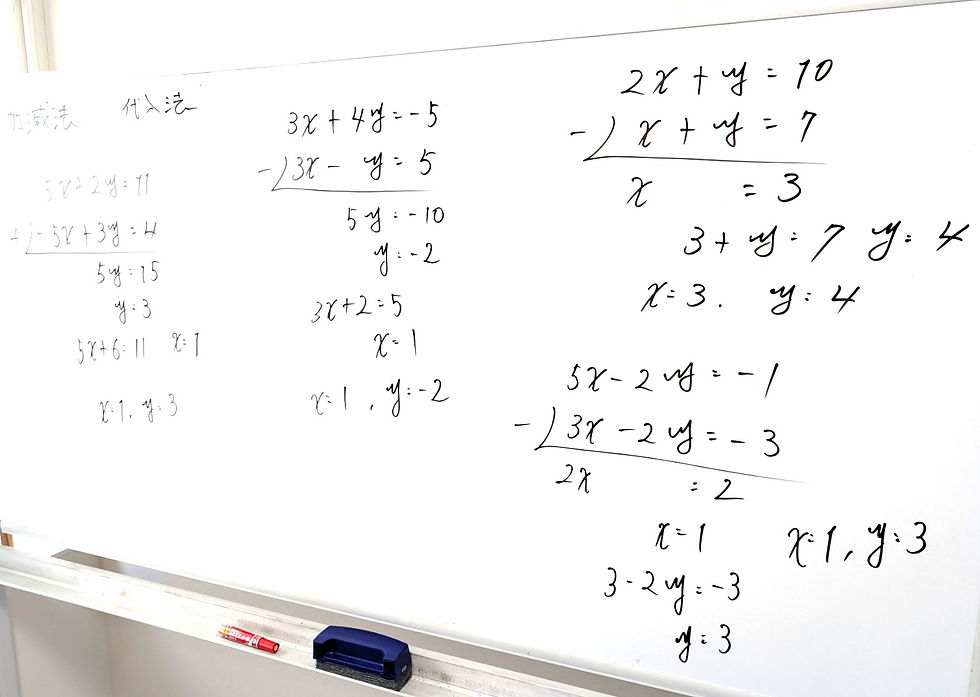 加減法 代入法
5x+2y=11
+) -5x+3y=4
5y=15
y=3
5x+6=11 x=1
x=1, y=3
3x+4y=-5
-) 3x-y=5
5y=-10
y=-2
3x+2=5
x=1
x=1, y=-2
2x+y=10
-) x+y=7
x =3
3+y=7 y=4
x=3. y=4
5x-2y=-1
-) 3x-2y=-3
2x =2
x=1 x=1, y=3
3-2y=-3
y=3